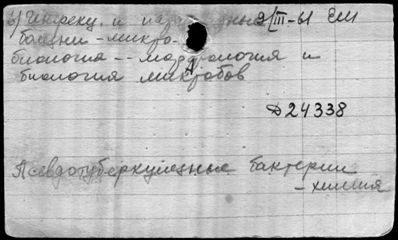 в) Инфекц. и паразитарные 9/III-61 ЕМ
-микро-
биология -- морфология и
биология микробов
Д24338
Псевдотуберкулезные бактерии
-химия